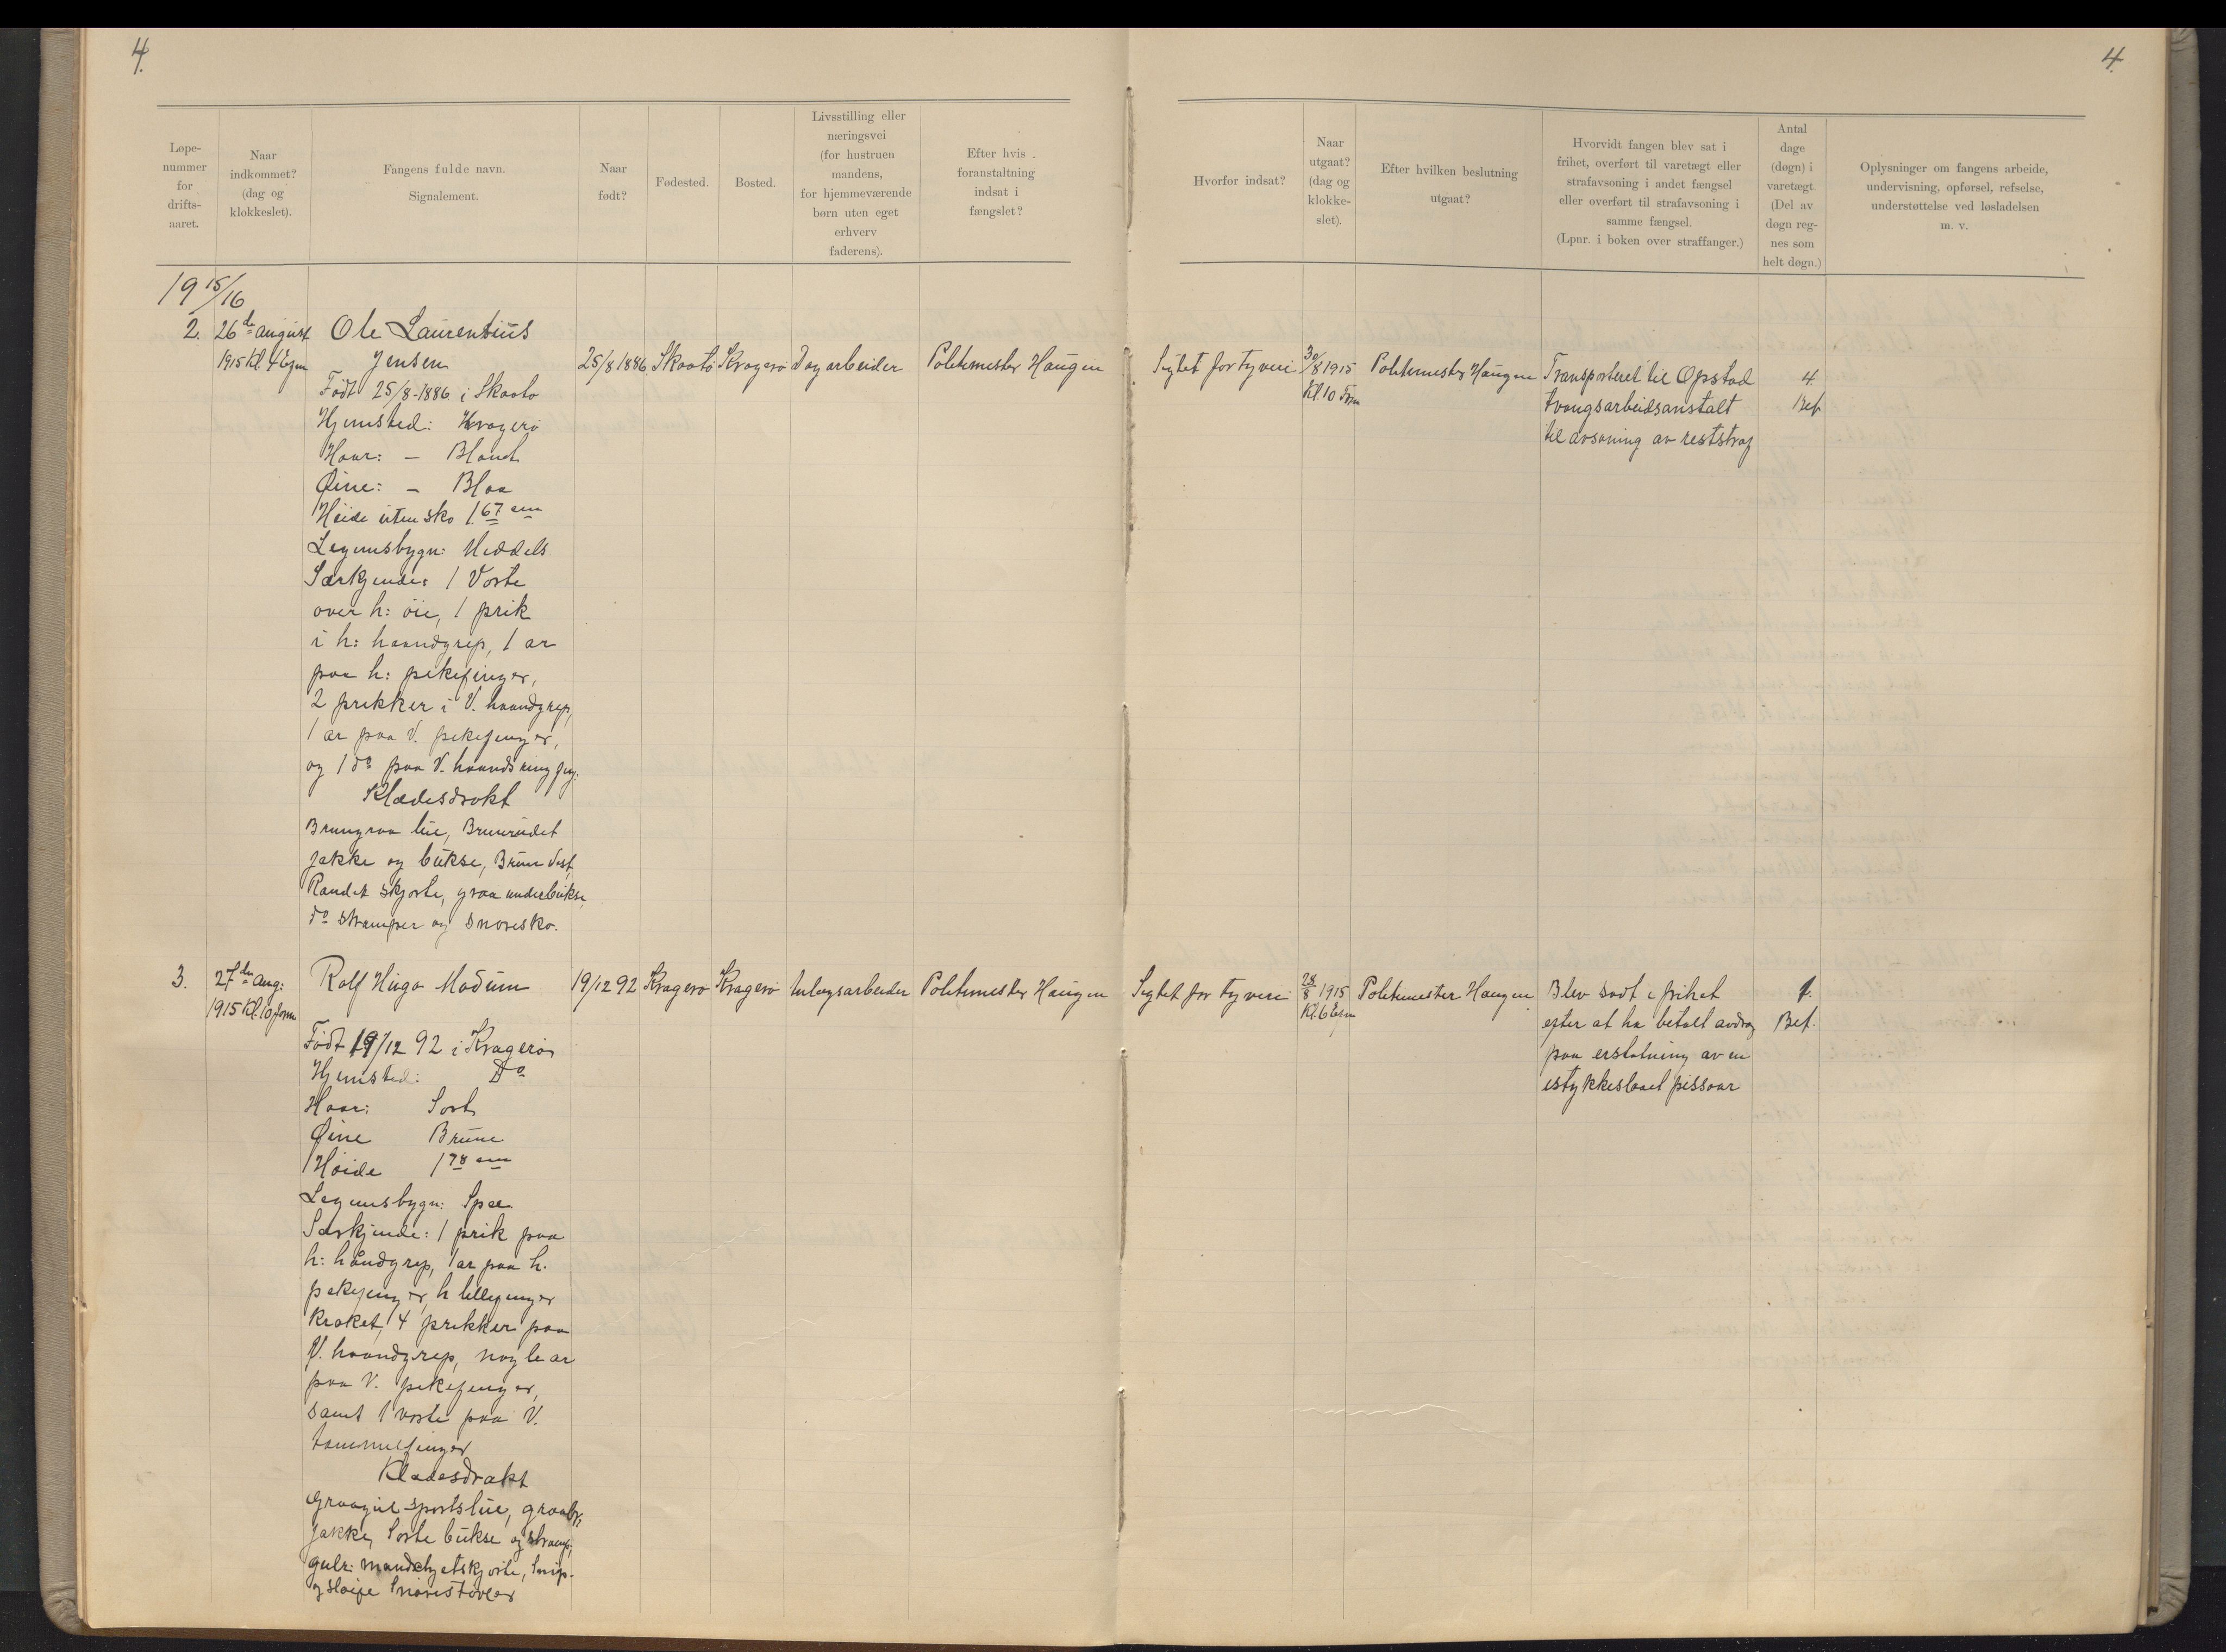 4.
4.
Løpe-
nummer
for
drifts-
aaret.
Naar
indkommet?
(dag og
klokkeslet).
Fangens fulde navn.
Signalement.
Naar
født?
Fødested.
Bosted.
Livsstilling eller
næringsvei
(for hustruen
mandens,
for hjemmeværende
børn uten eget
erhverv
faderens).
Efter hvis
foranstaltning
indsat i
fængslet?
Hvorfor indsat?
Naar
utgaat?
(dag og
klokke-
slet).
Efter hvilken beslutning
utgaat?
Hvorvidt fangen blev sat i
frihet, overført til varetægt eller
strafavsoning i andet fængsel
eller overført til strafavsoning i
samme fængsel.
(Lpnr. i boken over straffanger.)
Antal
dage
(døgn) i
varetægt.
(Del av
døgn reg-
nes som
helt døgn.)
Oplysninger om fangens arbeide,
undervisning, opførsel, refselse,
understøttelse ved løsladelsen
m. v.
19 15/16
2.
26de august
1915 Kl. 4 Efm
Ole Laurentius
Jensen
Født 25/8-1886 i Skaatø
Hjemsted: Kragerø
Haar: - Blond
Øine: - Blaa
Høide uten sko 1.67 cm
Legemsbygn: Meddels
Særkjende: 1 Vorte
over h: øie, 1 prik
i h: haandgrep, 1 ar
paa h: pekefinger,
2 prikker i V. haandgrep,
1 ar paa V. pekefinger,
og 1 do paa V. haands ringfing.
Klædesdrakt
Brungraa lue, Brunrudet
jakke og bukse, Brun Vest,
Randet skjorte, graa underbukse,
do strømper og snøresko.
25/8 1886
Skaatø
Kragerø
Dagarbeider
Politimester Haugen
Sigtet for tyveri
30/8 1915
Kl. 10 Fm
Politimester Haugen
Transporteret til Opstad
tvangsarbeidsanstalt
til avsoning av reststraf
4
Bet.
3.
27de Aug:
1915 Kl. 10 form
Rolf Hugo Modum
Født 19/12 92 i Kragerø
Hjemsted: Do
Haar: Sort
Øine Brune
Høide 1 78 cm
Legemsbygn: Spæ.
Særkjende: 1 prik paa
h: håndgrep, 1 ar paa h.
pekefinger, h lillefinger
kroket, 4 prikker paa
V. haandgrep, nogle ar
paa V. pekefinger,
samt 1 vorte paa V.
tommelfinger
Klædesdrakt
Graagul sportslue, graabr:
jakke, Sorte bukse og strømp;
gulr: mandchetskjorte, Snip-
og sløife Snørestøvler
19/12 92
Kragerø
Kragerø
Anlegsarbeider
Politimester Haugen
Sigtet for tyveri
28/8 1915
Kl. 6 Efm
Politimester Haugen
Blev sadt i frihet
efter at ha betalt avdrag
paa erstatning av en
istykkeslaat pissoar
1.
Bet.